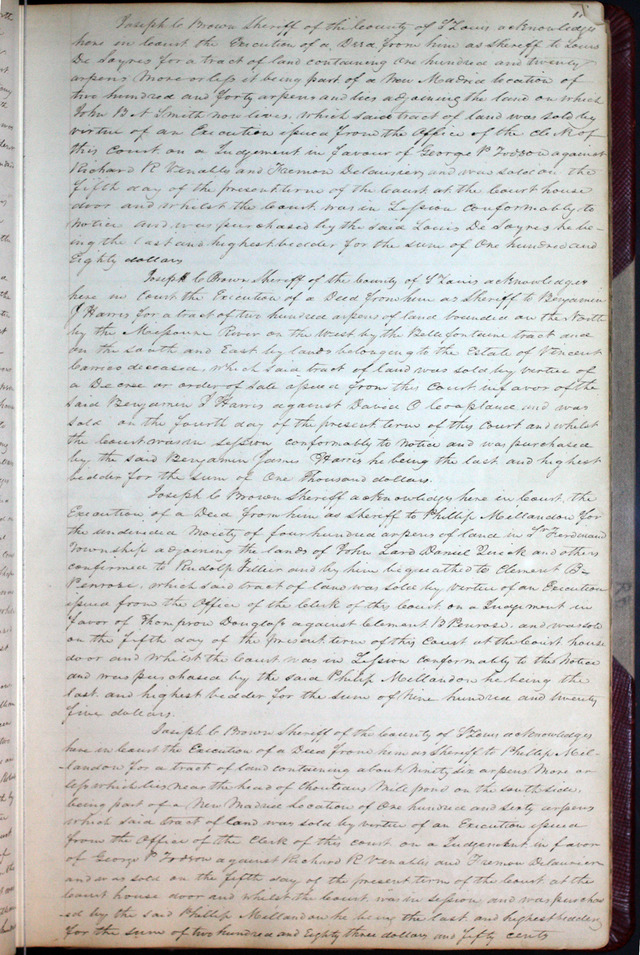 Joseph C Brown Sheriff of the County of St Louis acknowledges
here in court the Execution of a Deed from him as Sheriff to Louis
De Loyres for a tract of land containing One hundred and twenty
arpens more or less it being part of a New Madrid location of
two hundred and forty arpens and lies adjoining the land on which
John B N Smith now lives, which said tract of land was sold by
virtue of an Execution issued from the Office of the Clerk of
this Court on a Judgement in favour of George P. against
Richard R Venables and Delaurier, and was sold on the
fifth day of the present term of the Court at the Court house
door and whilst the Court was in Session conformably to
notice and was purchased by the said Louis De Loyres he be-
ing the last and highest bidder for the sum of One hundred and
Eighty dollars
Joseph C Brown Sheriff of the County of St Louis acknowledges
here in Court the Execution of a Deed from him as Sheriff to Benjamin
J Harris for a tract of two hundred arpens of land bounded on the North
by the Missouri River on the West by the Bellefontaine tract and
on the South and East by lands belonging to the Estate of Vincent
Carrico deceased, which said tract of land was sold by vertue of
a Decree or order of sale issued from this Court in favor of the
said Benjamin J Harris against David C Coapland and was
sold on the fourth day of the present term of this Court and whilst
the Court was in session conformably to Notice and was purchased
by the said Benjamin James Harris he being the last and highest
bidder for the sum of One Thousand dollars.
Joseph C Brown Sheriff acknowledges here in Court the
Execution of a Deed from him as Sheriff to Phillip Millandon for
the undivided Moiety of four hundred arpens of land in St Ferdinand
Township adjoining the lands of John Lard Daniel Quick and others
confirmed to Rudolf Tillier and by him bequeathed to Clement B-
Penrose, which said tract of land was sold by virtue of an Execution
issued from the Office of the Clerk of this Court on a Judgement in
favor of Thompson Douglass against Clement B Penrose, and was sold
on the fifth day of the present term of this Court at the Court house
door and whilst the Court was in Session conformably to the Notice
and was purchased by the said Philip Millandon he being the
last and highest bidder for the sum of Nine hundred and twenty
five dollars.
Joseph C Brown Sheriff of the County of St Louis acknowledges
here in Court the Execution of a Deed from him as Sheriff to Phillip Mil-
landon for a tract of land containing about Ninety six arpens more or
less which lies near the head of Chouteaus Mill pond on the south side,
being part of a New Madrid Location of One hundred and sixty arpens
which said tract of land was sold by virtue of an Execution issued
from the Office of the Clerk of this court on a Judgement in favor
of George P. against Richard R Venables and Delaurier
and was sold on the fifth day of the present term of the Court at the
Court house door and whilst the Court was in session and was purchas
ed by the said Phillip Millandon he being the last and highest bidder
for the sum of two hundred and Eighty three dollars and fifty cents